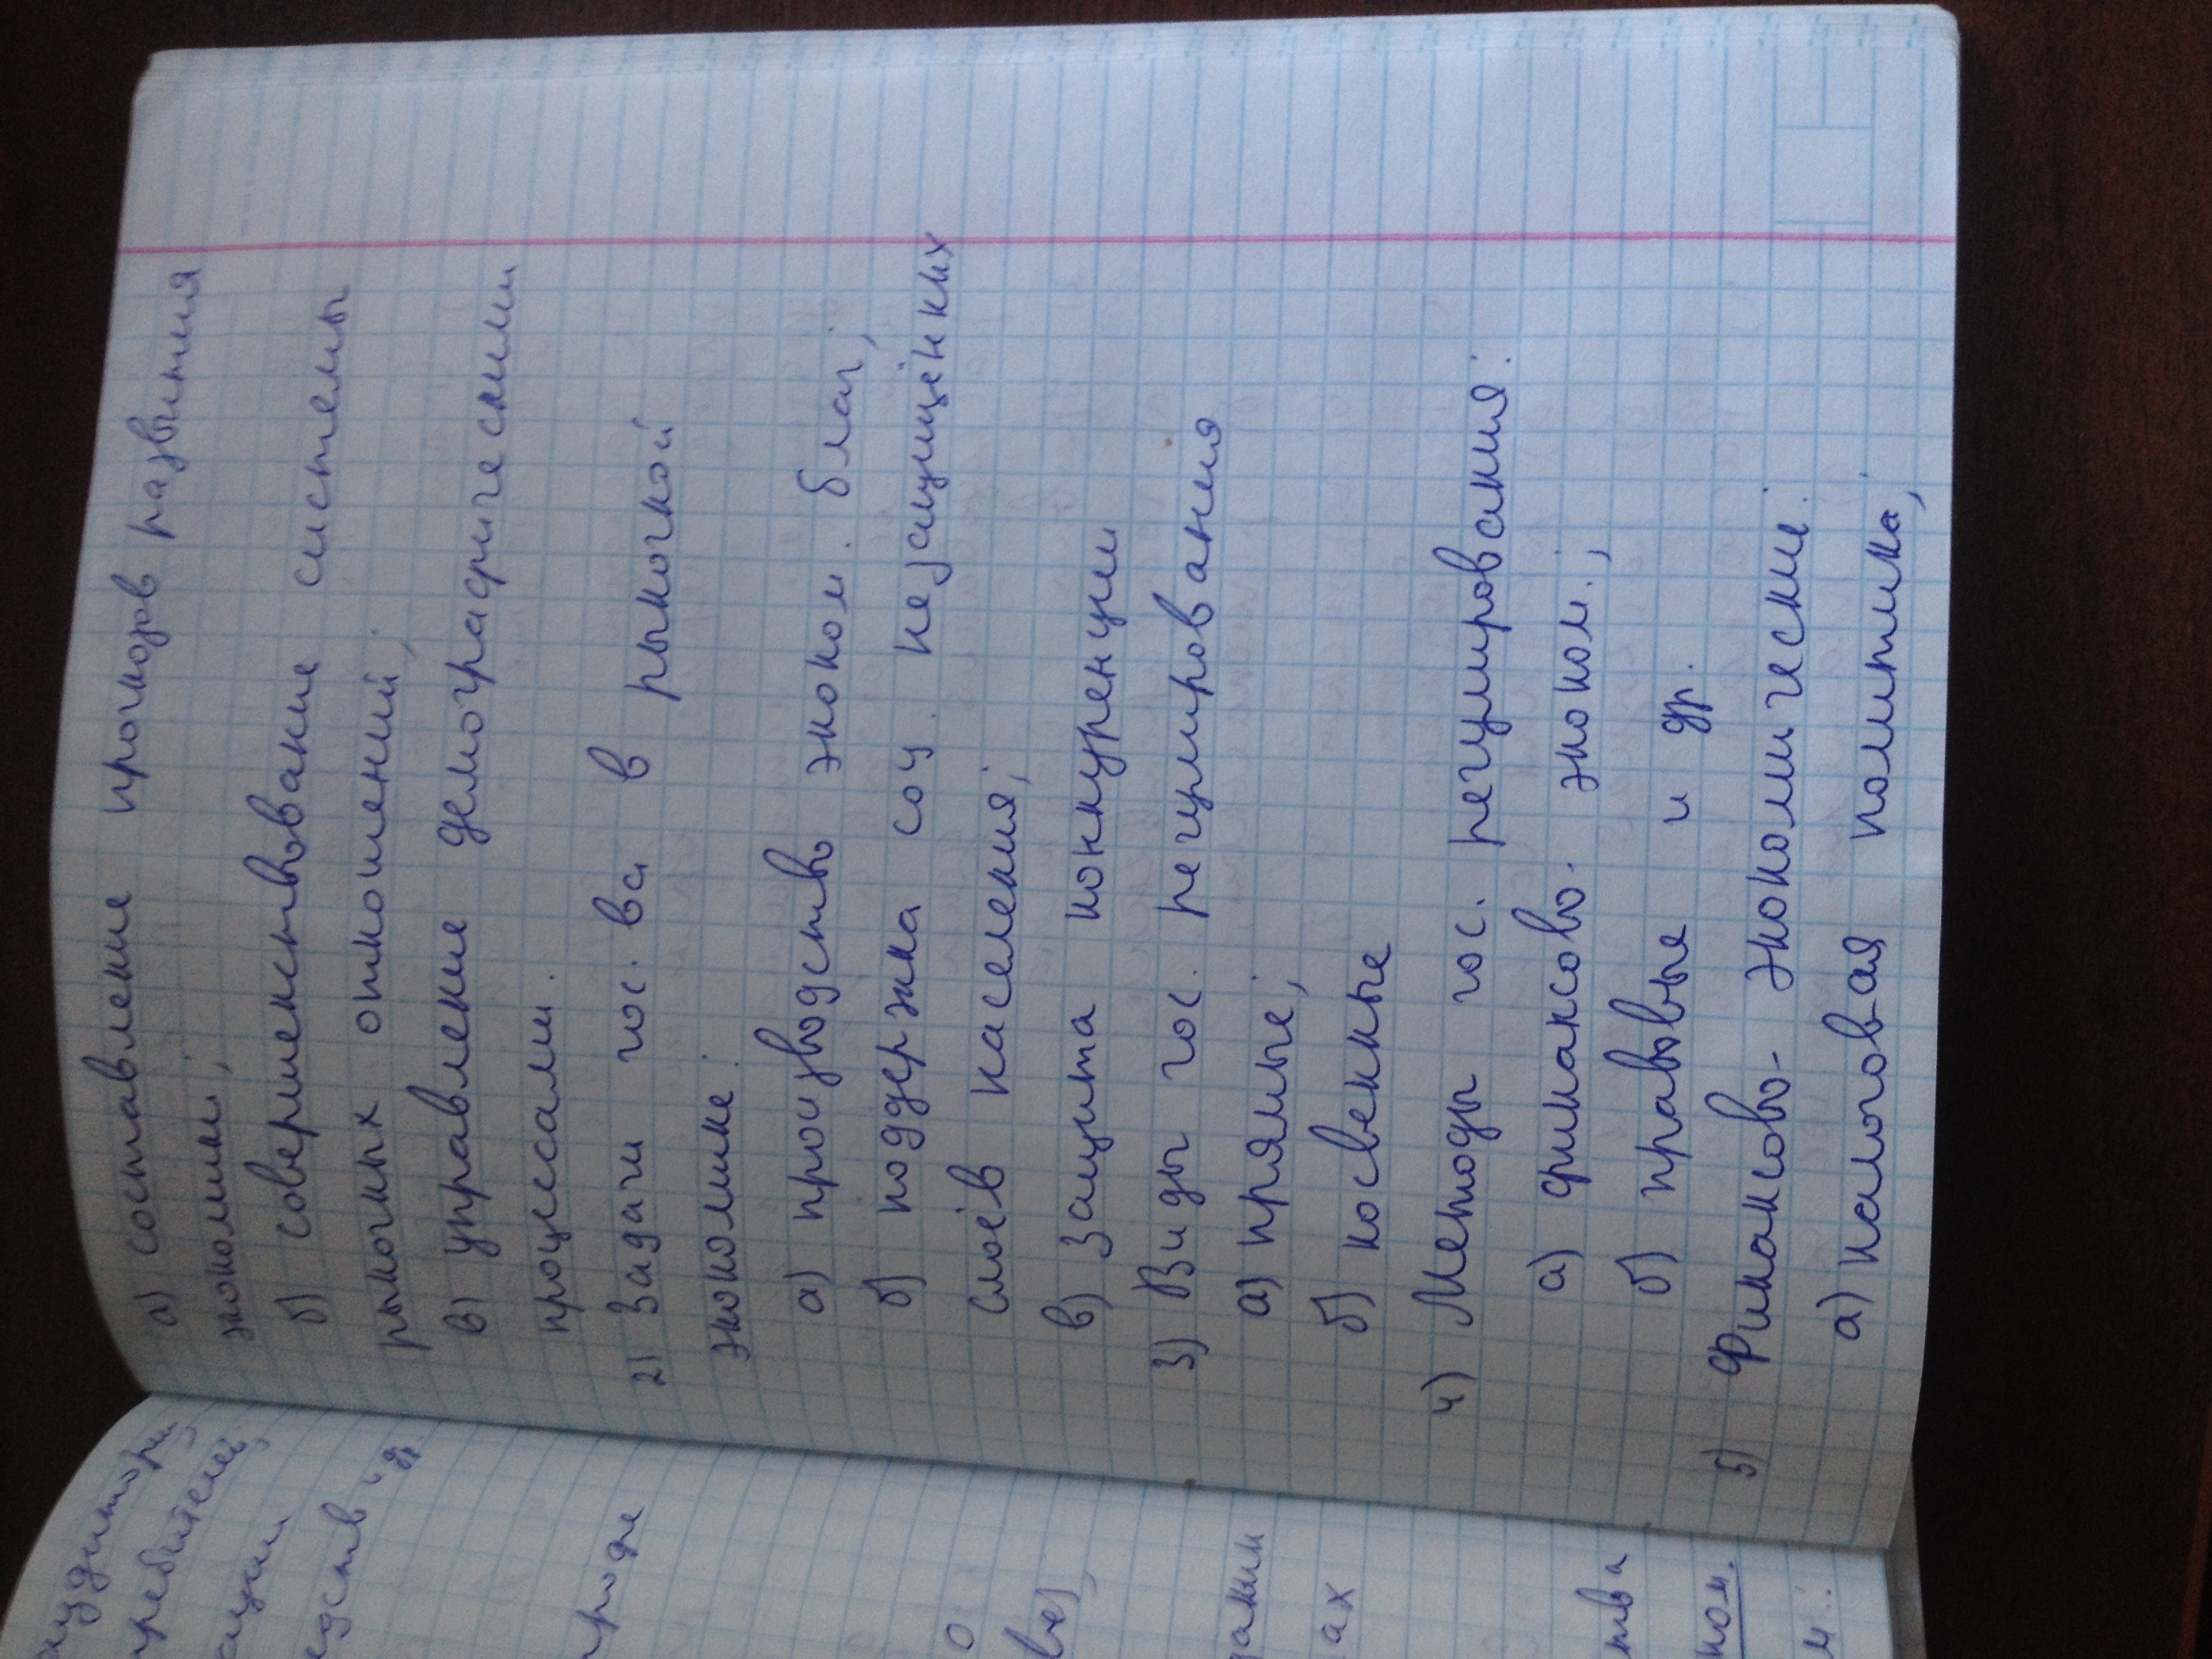 а) составление прогнозов развития
экономики;
б) совершенствование системы
рыночных отношений;
в) управление демографическими
процессами.
2) Задачи гос. ва в рыночной
экономике:
а) производство эконом. благ;
б) поддержка соц. незащищённых
слоёв населения;
в) защита конкуренции
3) Виды гос. регулирования
а) прямые;
б) косвенные
4) Методы гос. регулирования:
а) финансово- эконом.;
б) правовые и др.
5) Финансово- экономические:
а) налоговая политика;
требителей,
ации.
едств и др.
ироде
о
ве),
ах
тва
ном.
м: